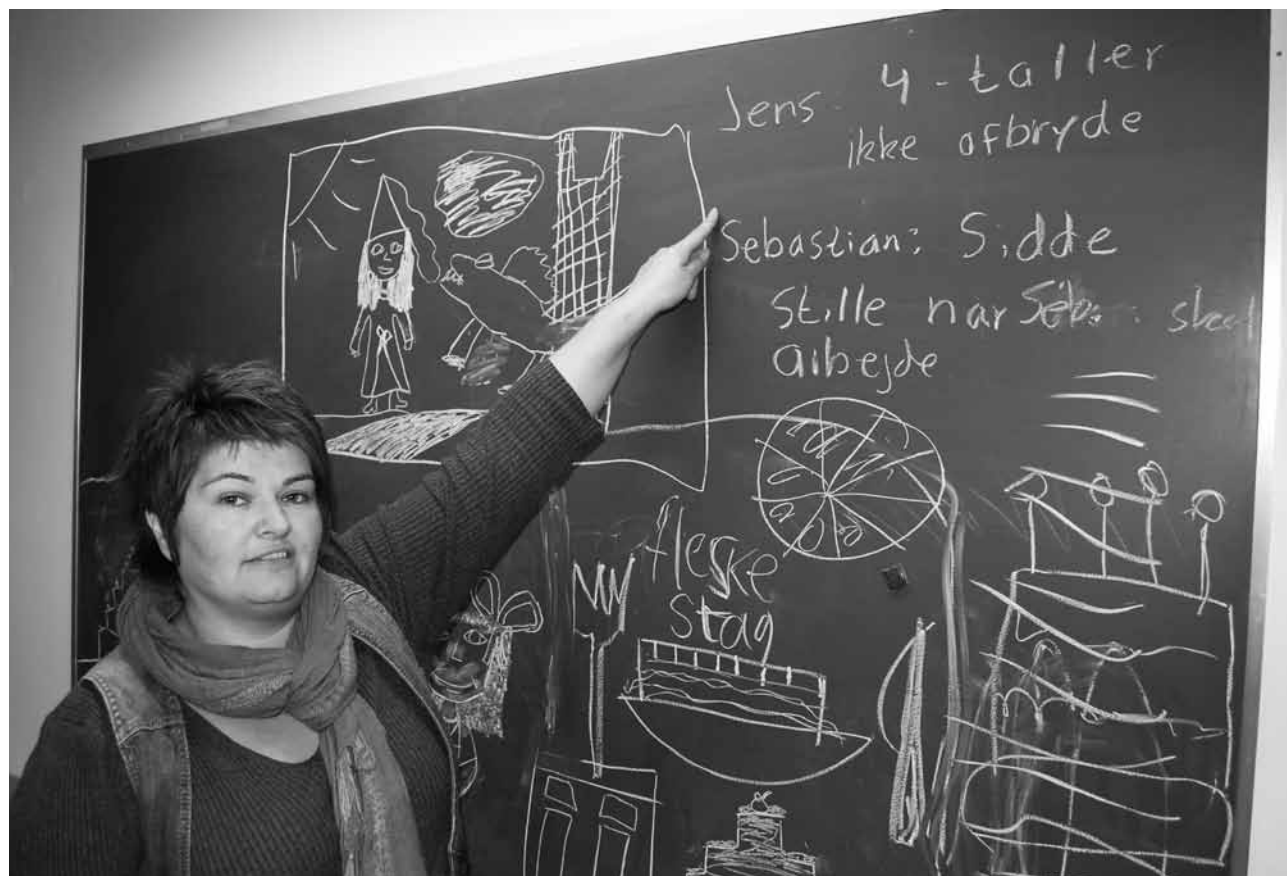 Jens - 4-taller
ikke afbryde
Sebastian: Sidde
stille når Seb.
arbejde
fleske
stag